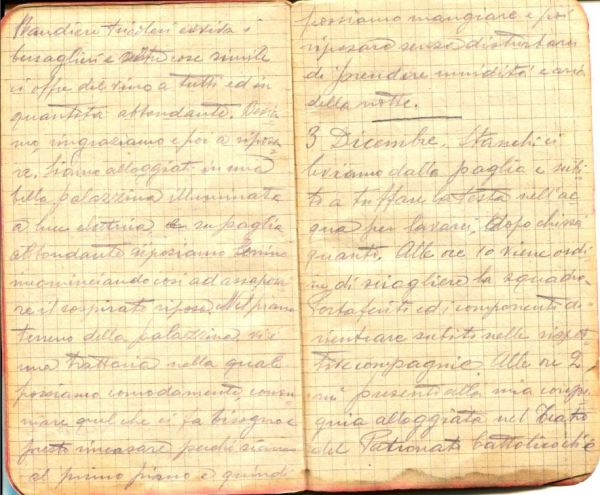 Bandiere tricolori evviva i
bersaglieri e altre cose simili
ci offre del vino a tutti ed in
quantità abbondante.
mo, ringraziamo e poi a riposa-
re. Siamo alloggiati in una
bella palazzina illuminata
a luce elettrica, su paglia
abbondante riposiamo benino
incominciando così ad assapora-
re il sospirato riposo. Nel piano
terreno della palazzina vi è
una trattoria nella quale
possiamo comodamente consu-
mare quel che ci fa bisogno e
presto rincasare perchè siamo
al primo piano e quindi
possiamo mangiare e poi
riposare senza disturbarci
di prendere umidità e aria
della notte.
3 Dicembre. Stanchi ci
leviamo dalla paglia e subi-
to a tuffare la testa nell'ac
qua per lavarci, dopo chissà
quanti. Alle ore 10 viene ordi
ne di sciogliere la squadra
portaferiti ed i componenti di
rientrare subito nelle rispet-
tive compagnie. Alle ore 2
mi presento alla mia compa-
gnia alloggiata nel Teatro
del Patronato Cattolico che è